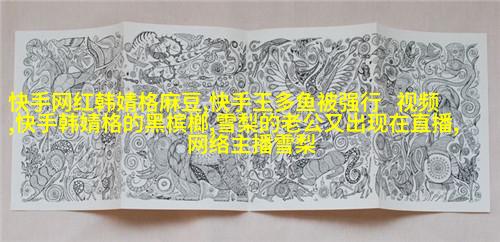 快手网红韩婧格麻豆,快手王多鱼被强行  视频
,快手韩婧格的黑槟榔,雪梨的老公又出现在直播,
网络主播雪梨